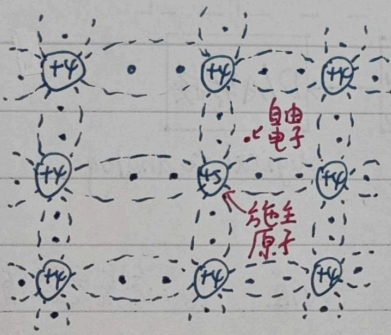 +4 +4 +4
自由
电子
+4 +5 +4
施主
原子
+4 +4 +4